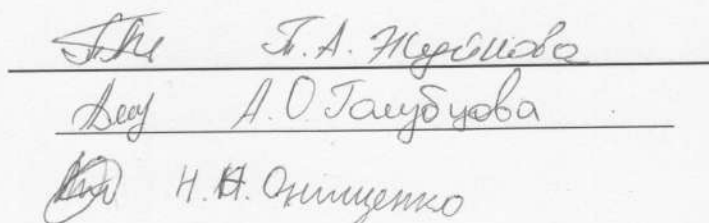 Т.А. Жуйкова
А.О. Голубцова
Н.Н. Онищенко